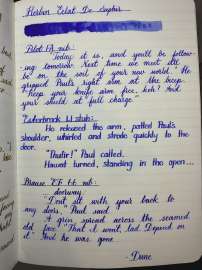 Herbin Éclat De Saphir
Pilot FA nib:
"Today, it is, and you'll be follow-
ing tomorrow. Next time we meet it'll
be on the soil of your new world." He
gripped Paul's right arm at the bicep.
"Keep your knife arm free, heh? And
your shield at full charge."
Esterbrook stub:
He released the arm, patted Paul's
shoulder, whirled and strode quickly to the
door.
"Thufir!" Paul called.
Hawat turned, standing in the open...
nib:
...doorway.
"Don't sit with your back to
any doors," Paul said.
A grin spread across the seamed
old face. "That I won't, lad. Depend on
it." And he was gone.
- Dune